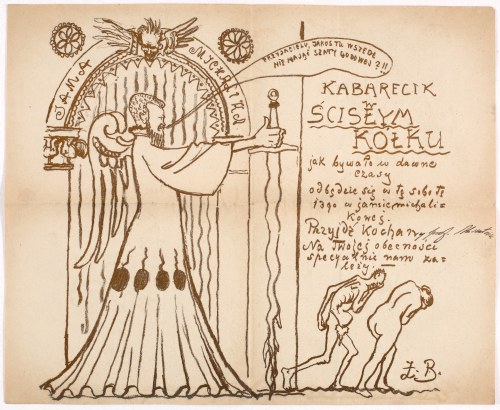 JAMA MICHALIKA
PRZYJACIELU, JAKOŚ TU WSZEDŁ
NIE MAJĄC SZATY GODOWEJ?!!
KABARECIK
W
ŚCISŁYM
KÓŁKU
jak bywało w dawne
czasy
odbędzie się w tę sobotę
13go w jamie michali-
kowej.
Przyjdź Kochany
Na Twojej obecności
specyalnie nam za-
leży.
Ż. B.